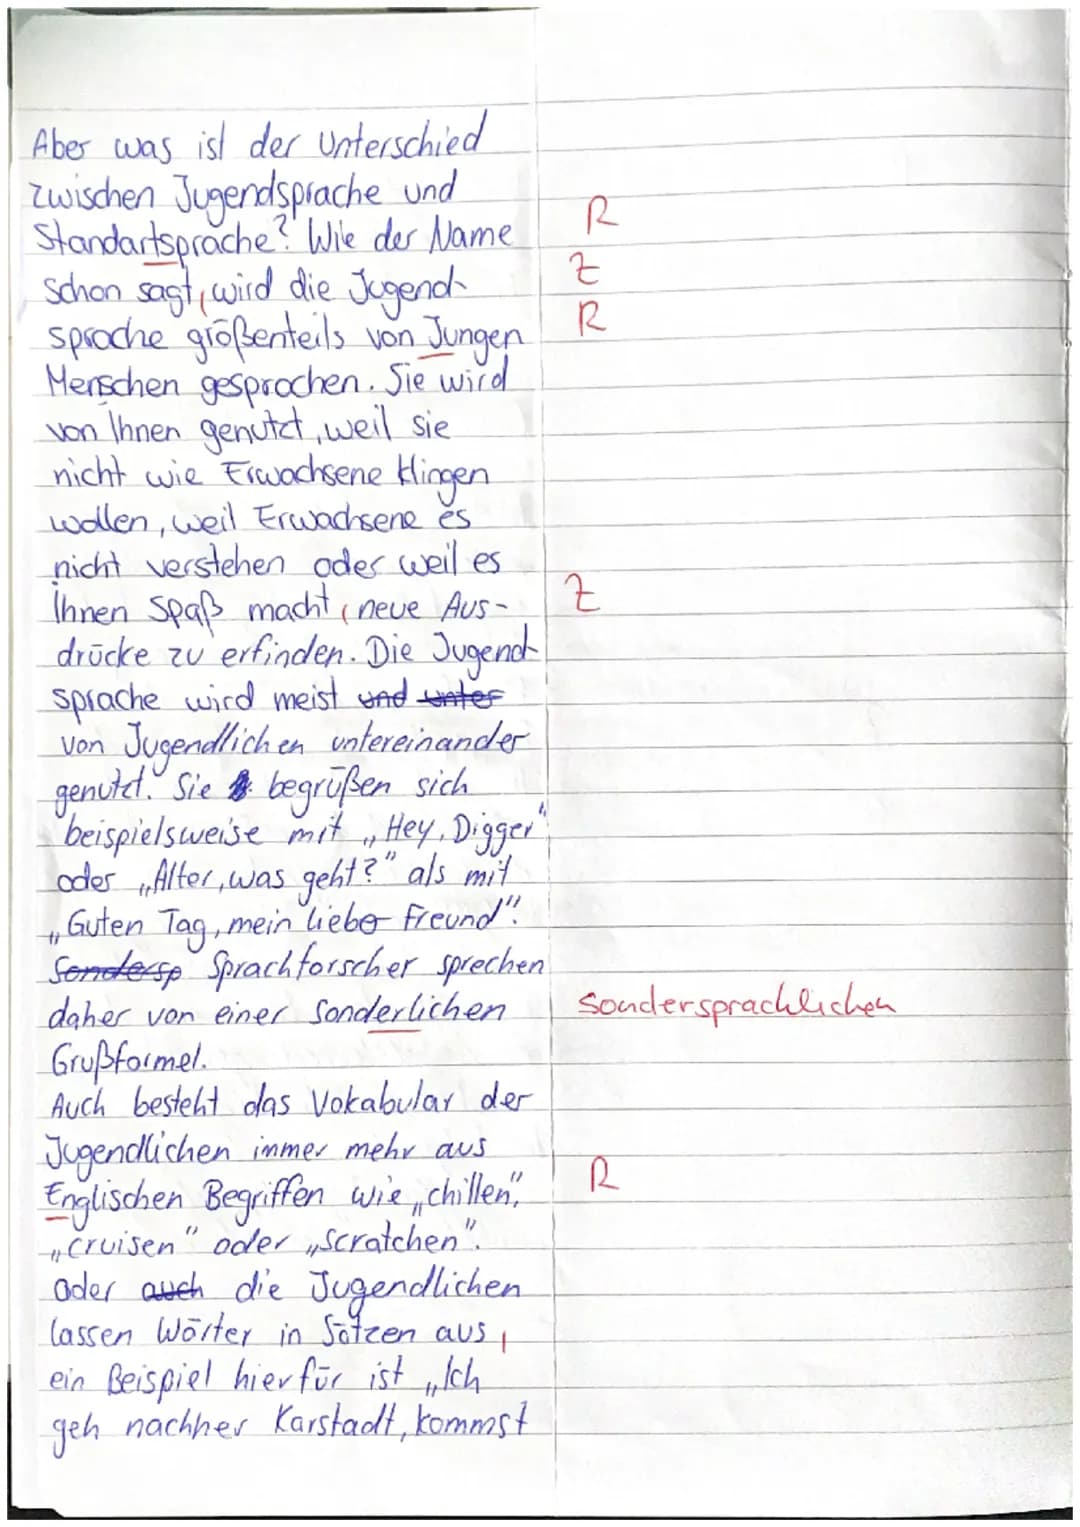 Aber was ist der Unterschied
zwischen Jugendsprache und
R
Standartsprache? Wie der Name
Z
schon sagt, wird die Jugend-
R
sprache größenteils von Jungen
Menschen gesprochen. Sie wird
von Ihnen genutzt, weil sie
nicht wie Erwachsene klingen
wollen, weil Erwachsene es
nicht verstehen oder weil es
Ihnen Spaß macht, neue Aus-
Z
drücke zu erfinden. Die Jugend-
sprache wird meist und unter
von Jugendlichen untereinander
genutzt. Sie begrüßen sich
beispielsweise mit „Hey, Digger"
oder „Alter, was geht?" als mit
„Guten Tag, mein lieber Freund".
Sondersp Sprachforscher sprechen
daher von einer sonderlichen
sondersprachlichen
Grußformel.
Auch besteht das Vokabular der
Jugendlichen immer mehr aus
Englischen Begriffen wie „chillen",
R
„cruisen" oder „scratchen".
Oder auch die Jugendlichen
lassen Wörter in Sätzen aus,
ein Beispiel hierfür ist „Ich
geh nachher Karstadt, kommst